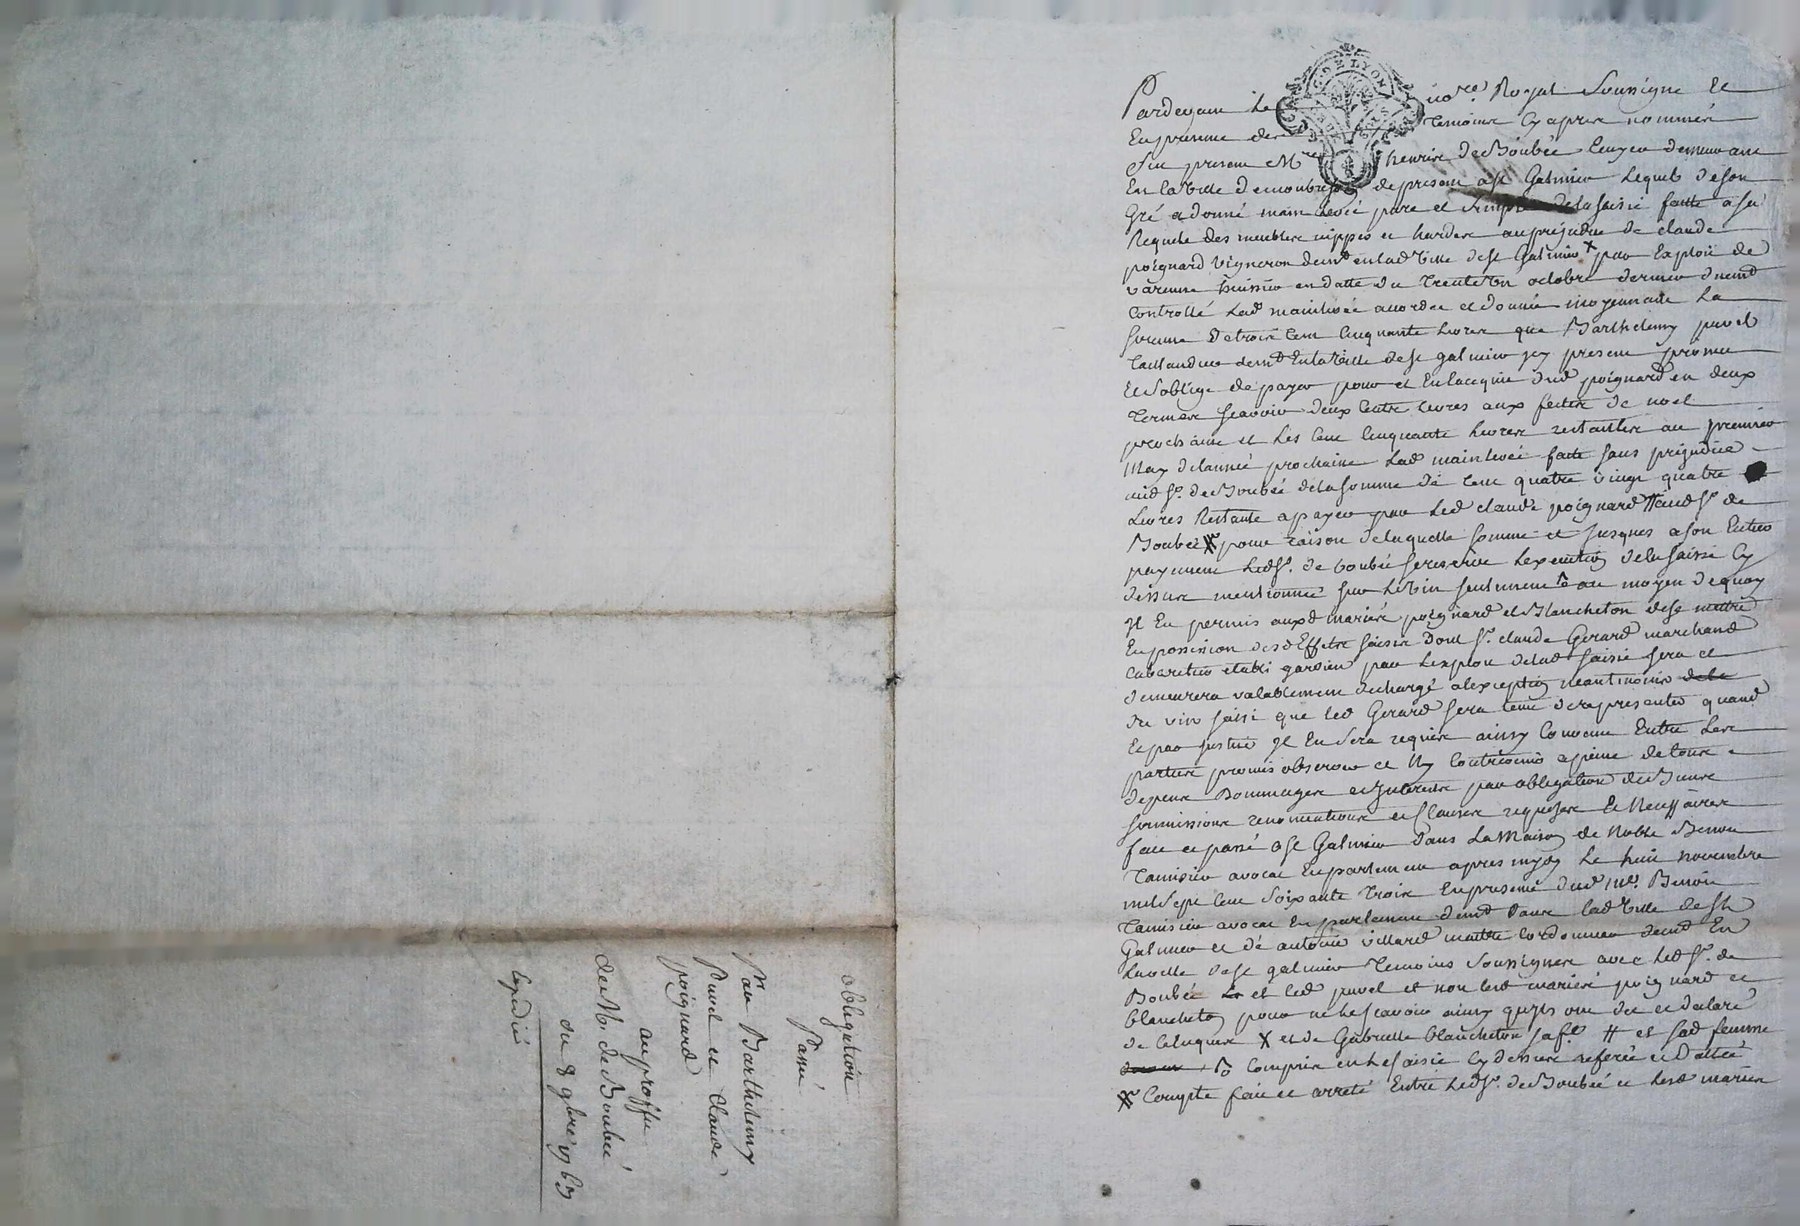 Pardevant Le no.re Royal Soussigné Et
En presence des Temoins Cy apres nommés
fut present M.re henrié de Boubée Ecuyer demeurant
En la ville de montbrison de present a st Galmier Lequel de son
Gré a donné main levée pure et simple de la saisie faitte a sa
Requete des meubles nippes et hardes au prejudice de claude
poignard Vigneron demt en lad ville de st Galmier X par Exploit de
varenne huissier en datte du Trente un octobre dernier duemt
Controllé Lad mainlevée accordée et donnée moyennant La
somme de trois Cent Cinquante Livres que Barthelemy pavet
Taillandier demt En la ville de st galmier icy present promet
Et s'oblige de payer pour et En lacquit dud poignard en deux
Termes scavoir deux Cents livres aux fettes de noel
prochaine et Les Cent Cinquante Livres restantes au premier
May de lannée prochaine Lad mainlevée faitte sans prejudice
aud sr. de Boubée de la somme de Cent quatre vingt quatre
Livres Restante a payer par Led claude poignard # aud sr de
Boubée pour raison de laquelle somme et jusques a son Entier
payement Led sr. de boubée se reserve Lexecution de la saisie Cy
dessus mentionnée sur Le vin seulement au moyen de quoy
Il Est permis auxd mariés poignard et Blancheton de se mettre
En possession desd Effets saisis Dont sr. claude Gerard marchand
Cabaretier etabli gardien par Lexploit de lad saisie sera et
demeurera valablement dechargé a lexception neantmoins de la
du vin saisi que led Gerard sera tenu de representer quand
Et par justice Il En sera requis ainsy Convenu Entre Les
parties promis observer et Ny Contrevenir a peine de tous
depens Dommages et Interets par obligation de Biens
soumissions renonciations et Clauses requises Et Necessaires
fait et passé a st Galmier Dans La Maison de Noble Benoit
Tamisier avocat En parlement apres midy Le huit novembre
mil sept Cent soixante Trois En presence dud Me. Benoit
Tamisier avocat En parlement demt Dans lad Ville de st
Galmier et de antoine villard maitre Cordonnier demt En
La ville de st galmier Temoins soussignes avec Led sr. de
Boubée et led pavet et non lesd mariés poignard et
blancheton pour ne le scavoir ainsy quils ont dit et declaré
de Ce Enquis X et de Gabrielle blancheton sa fe # et sad femme
Compris en la saisie Cy dessus referée et Dattée
Compte fait et arreté Entre Led sr. de Boubée et Lesd mariés
obligation
Passé
Par Barthelemy
Pavet et Claude
poignard
au proffit
de M. de Boubée
du 8 9bre 1763
Expedié